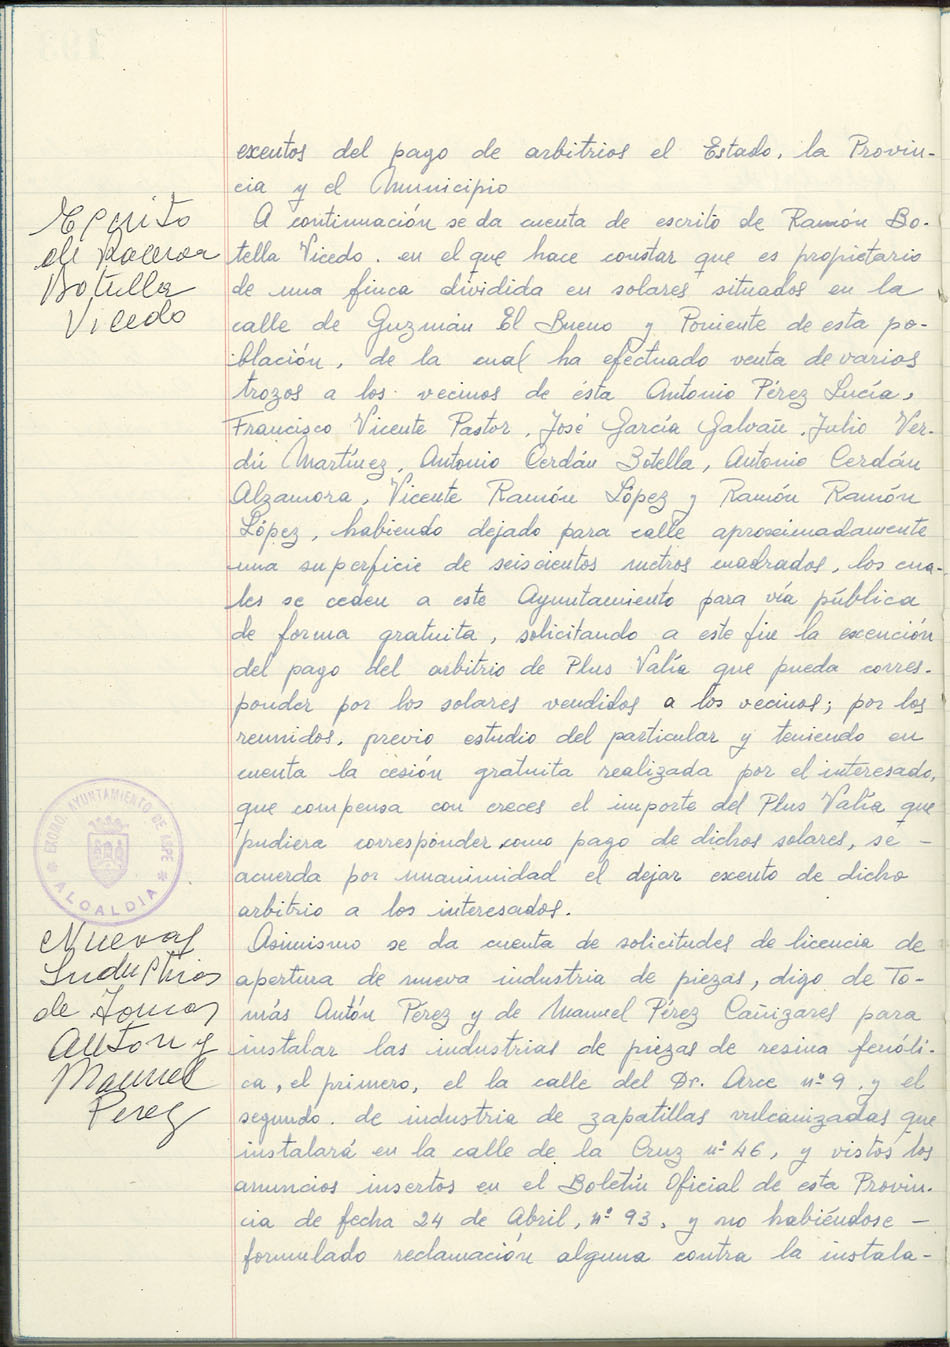 exentos del pago de arbitrios el Estado, la Provin-
cia y el Municipio
Escrito
de Ramon
Botella
Vicedo
A continuación se da cuenta de escrito de Ramón Bo-
tella Vicedo. en el que hace constar que es propietario
de una finca dividida en solares situados en la
calle de Guzmán El Bueno y Poniente de esta po-
blación, de la cual ha efectuado venta de varios
trozos a los vecinos de ésta Antonio Pérez Lucía,
Francisco Vicente Pastor, José García Galvañ, Julio Ver-
dú Martínez, Antonio Cerdán Botella, Antonio Cerdán
Alzamora, Vicente Ramón López y Ramón Ramón
López, habiendo dejado para calle aproximadamente
una superficie de seiscientos metros cuadrados, los cua-
les se ceden a este Ayuntamiento para vía pública
de forma gratuita, solicitando a este fin la exención
del pago del arbitrio de Plus Valía que pueda corres-
ponder por los solares vendidos a los vecinos; por los
reunidos, previo estudio del particular y teniendo en
cuenta la cesión gratuita realizada por el interesado,
que compensa con creces el importe del Plus Valía que
pudiera corresponder como pago de dichos solares, se -
acuerda por unanimidad el dejar exento de dicho
arbitrio a los interesados.
EXCMO. AYUNTAMIENTO DE ASPE
* ALCALDIA *
Nuevas
Industrias
de Tomas
Anton y
Manuel
Perez
Asimismo se da cuenta de solicitudes de licencia de
apertura de nueva industria de piezas, digo de To-
más Antón Pérez y de Manuel Pérez Cañizares para
instalar las industrias de piezas de resina fenóli-
ca, el primero, el la calle del Dr. Arce nº 9, y el
segundo. de industria de zapatillas vulcanizadas que
instalará en la calle de la Cruz nº 46, y vistos los
anuncios insertos en el Boletín Oficial de esta Provin-
cia de fecha 24 de Abril, nº 93, y no habiéndose -
formulado reclamación alguna contra la instala-